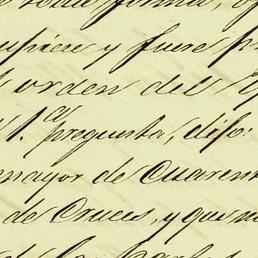 forma,
supiere y fuere pr
orden del
1.ª pregunta, dijo:
mayor de Cuarent
de Cruces, y que no